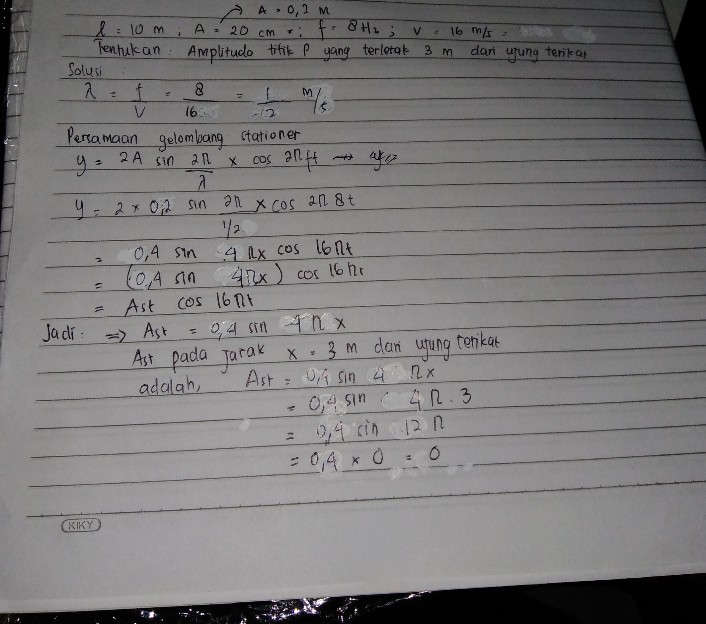 → A = 0,2 m
l = 10 m ; A = 20 cm ; f = 8 Hz ; v = 16 m/s
Tentukan : Amplitudo titik P yang terletak 3 m dari ujung terikat
Solusi :
λ = f/v = 8/16 = 1/2 m/s
Persamaan gelombang stationer
y = 2A sin 2π/λ x cos 2πft →
y = 2 x 0,2 sin 2π/1/2 x cos 2π 8t
= 0,4 sin 4πx cos 16πt
= (0,4 sin 4πx) cos 16πt
= Ast cos 16πt
Jadi : => Ast = 0,4 sin 4πx
Ast pada jarak x = 3 m dari ujung terikat
adalah, Ast = 0,4 sin 4 πx
= 0,4 sin 4π . 3
= 0,4 sin 12π
= 0,4 x 0 = 0
KIKY